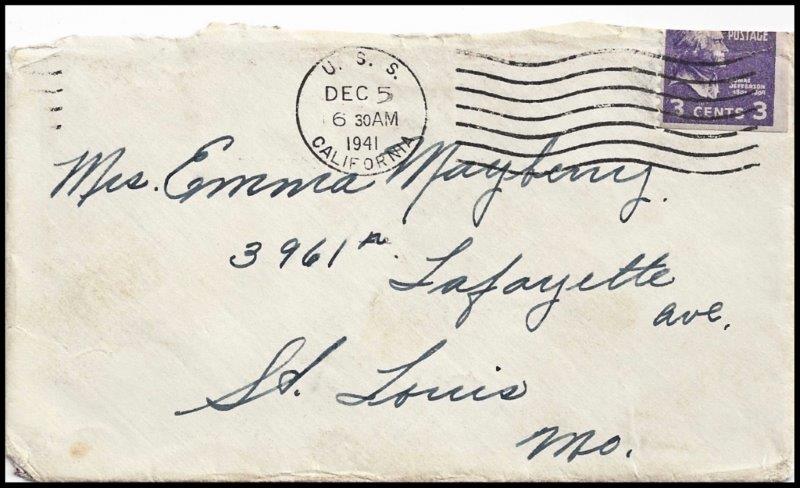 U. S. S.
DEC 5
6 30AM
1941
CALIFORNIA
POSTAGE
THOMAS
JEFFERSON
3 CENTS 3
Mrs. Emma Mayberry.
3961a
Lafayette
ave.
St. Louis
Mo.